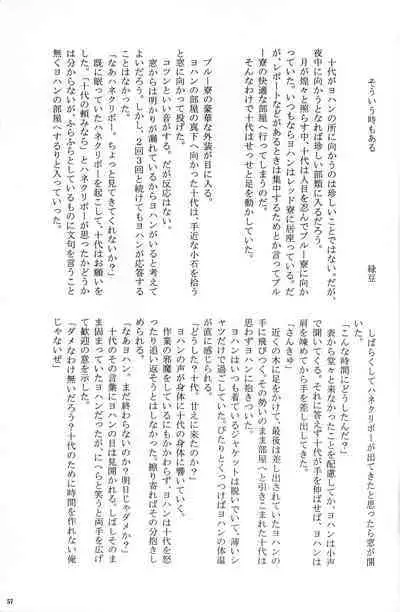 そういう時もある
緑豆
十代がヨハンの所に向かうのは珍しいことではない。だが、
夜中に向かうとなれば珍しい部類に入るだろう。
月が煌々と照らす中、十代は人目を忍んでブルー寮に向か
っていた。いつもならヨハンはレッド寮に居座っている。だ
が、レポートなどがあるときは集中するためとか言ってブル
ー寮の快適な部屋へ行ってしまうのだ。
そんなわけで十代はせっせと足を動かしていた。
ブルー寮の豪華な外装が目に入る。
ヨハンの部屋の真下へ向かった十代は、手近な小石を拾う
と窓に向かって投げた。
コツンという音がする。だが反応はない。
窓からは明かりが漏れているからヨハンがいると考えて
よいだろう。しかし、2回3回と続けてもヨハンが応答する
ことはなかった。
「なあハネクリボー。ちょっと見てきてくれないか?」
既に眠っていたハネクリボーを起こして、十代はお願いを
した。「十代の頼みなら」とハネクリボーが思ったかどうか
は分からないが、ふらふらとしているものに文句を言うこと
も無くヨハンの部屋へするりと入っていった。
しばらくしてハネクリボーが出てきたと思ったら窓が開
いた。
「こんな時間にどうしたんだ?」
表から堂々と来なかったことを配慮してか、ヨハンは小声
で聞いてくる。それに答えず十代が手を伸ばせば、ヨハンは
肩を竦めてから手を差し出してきた。
「さんきゅ」
近くの木に足をかけて、最後は差し出されていたヨハンの
手に飛びつく。その勢いのまま部屋へと引きこまれた十代は
思わずヨハンに抱きついた。
ヨハンはいつも着ているジャケットは脱いでいて、薄いシ
ャツだけで過ごしていた。ぴたりとくっつけばヨハンの体温
が直に感じられる。
「どうした?十代。甘えに来たのか?」
ヨハンの声が身体に十代の身体に響いていく。
作業の邪魔をしているにもかかわらず、ヨハンは十代を怒
ったり追い返そうとはしなかった。擦り寄ればその分抱きし
「なあヨハン。まだ終わらないのか?明日じゃダメか?」
十代のその言葉にヨハンの目は見開かれる。しばしそのま
ま固まっていたヨハンだったが、にへらと笑うと両手を広げ
て歓迎の意を示した。
「ダメなわけ無いだろう?十代のために時間を作れない俺
じゃないぜ」
57